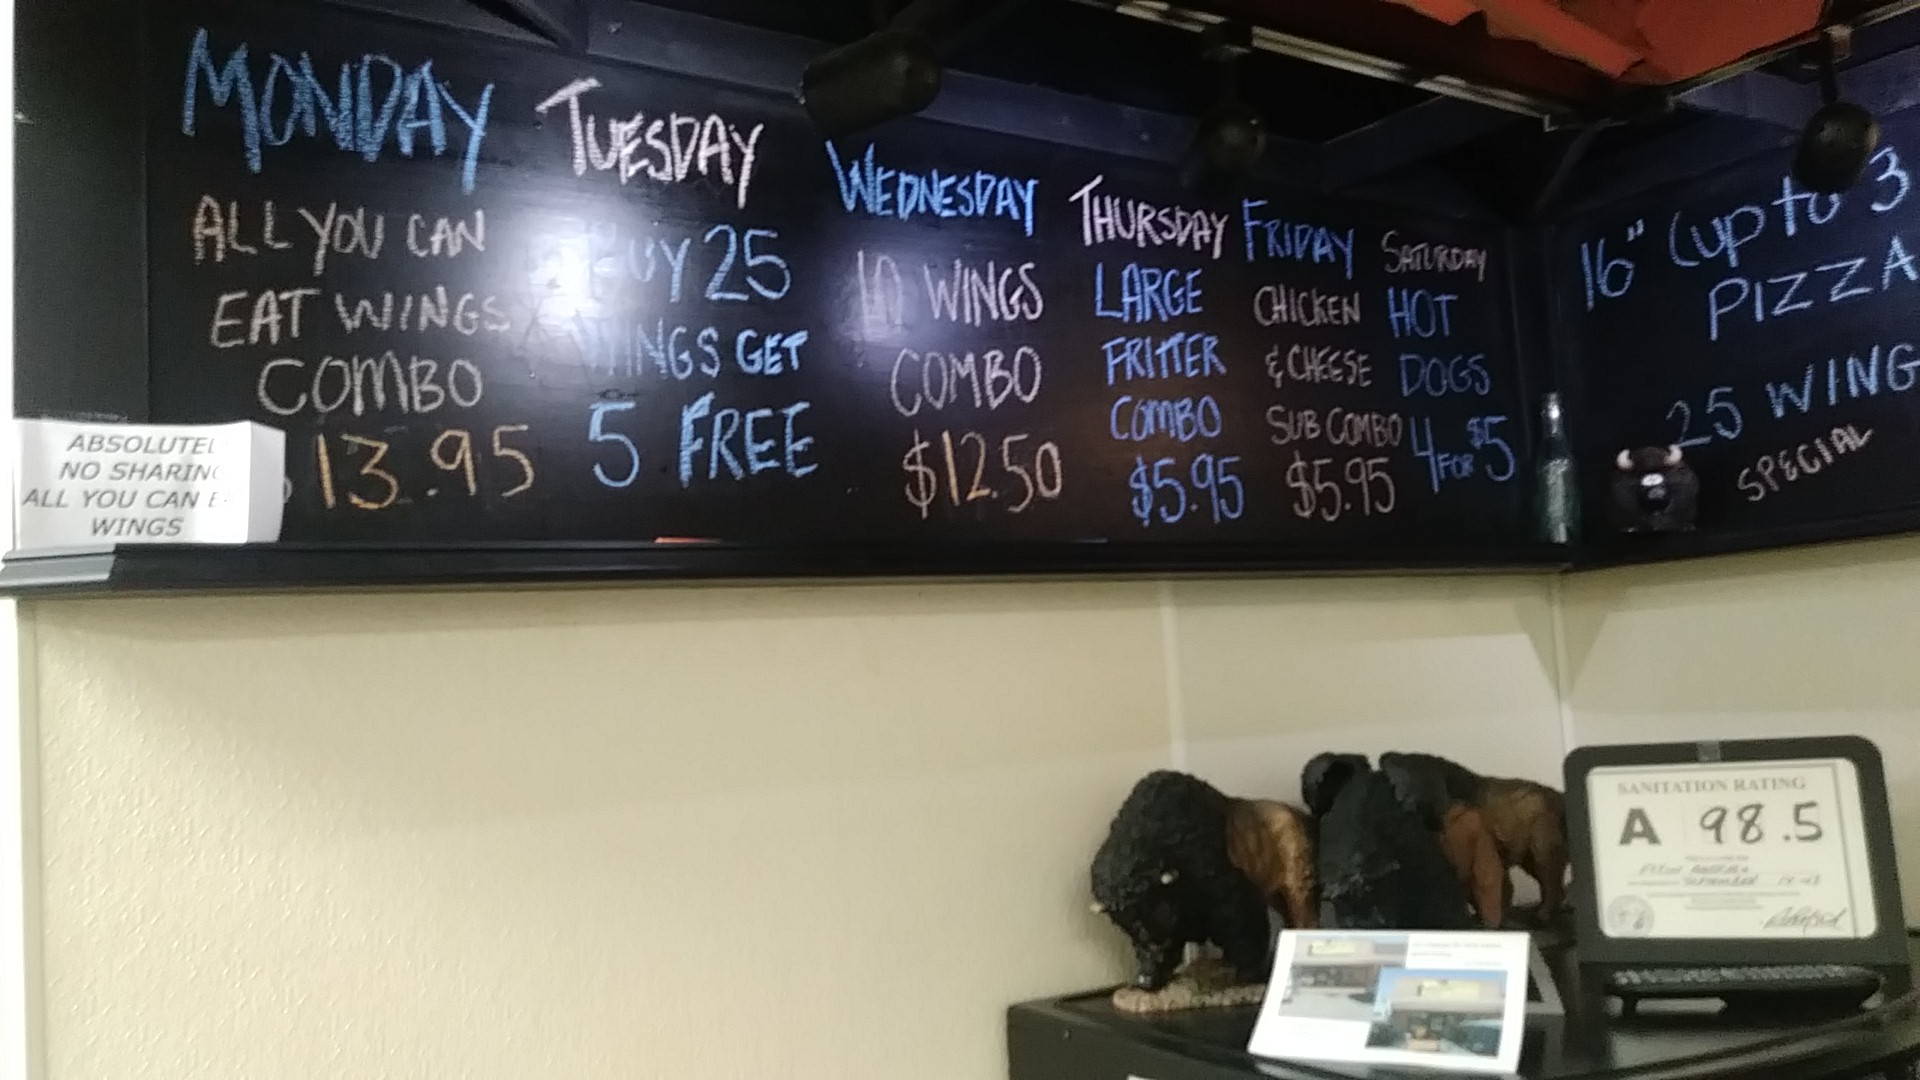 MONDAY
ALL YOU CAN
EAT WINGS
COMBO
13.95
TUESDAY
BUY 25
WINGS GET
5 FREE
WEDNESDAY
10 WINGS
COMBO
$12.50
THURSDAY
LARGE
FRITTER
COMBO
$5.95
FRIDAY
CHICKEN
& CHEESE
SUB COMBO
$5.95
SATURDAY
HOT
DOGS
4 FOR $5
16" (up to 3
PIZZA
25 WING
SPECIAL
ABSOLUTEL
NO SHARING
ALL YOU CAN E
WINGS
SANITATION RATING
A 98.5